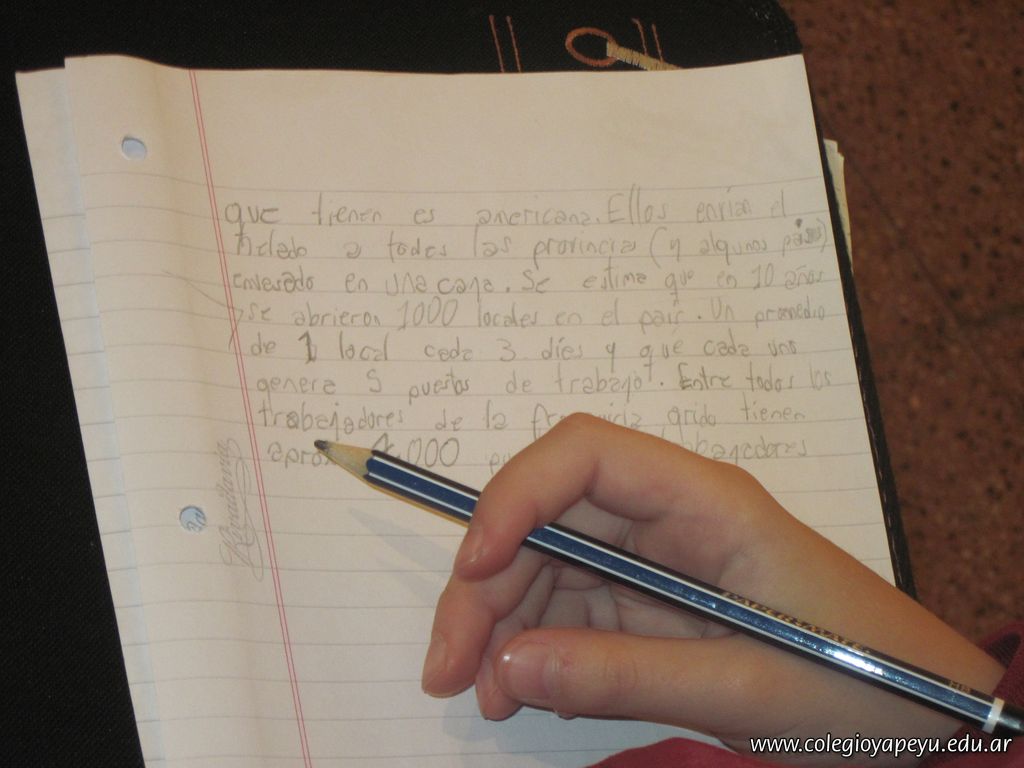 que tienen es americana. Ellos envían el
helado a todas las provincias (y algunos países)
envasado en una caja. Se estima que en 10 años
se abrieron 1000 locales en el país. Un promedio
de 1 local cada 3 días y que cada uno
genera 5 puestos de trabajo. Entre todos los
trabajadores de la franquicia grido tienen
aprox 4000 trabajadores
Rivadavia
PAPERMATE
HB
www.colegioyapeyu.edu.ar